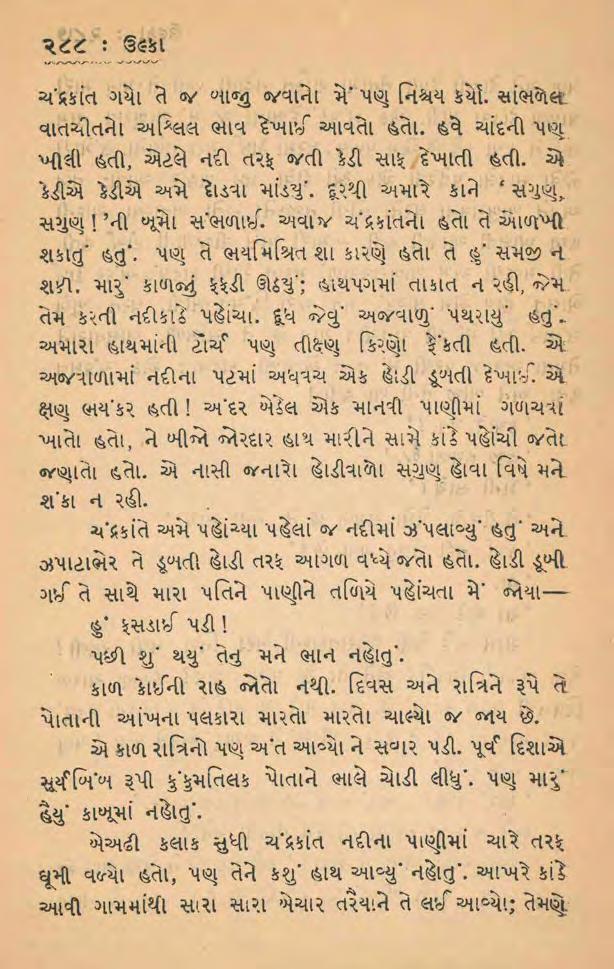 ૨૮૮ : ઉલ્કા
ચંદ્રકાંત ગયો તે જ બાજુ જવાનો મેં પણ નિશ્ચય કર્યો. સાંભળેલ
વાતચીતનો અશ્લિલ ભાવ દેખાઈ આવતો હતો. હવે ચાંદની પણ
ખીલી હતી, એટલે નદી તરફ જતી કેડી સાફ દેખાતી હતી. એ
કેડીએ કેડીએ અમે દોડવા માંડયું. દૂરથી અમારે કાને ‘ સગુણ,
સગુણ ! ’ની બૂમો સંભળાઈ. અવાજ ચંદ્રકાંતનો હતો તે ઓળખી
શકાતું હતું. પણ તે ભયમિશ્રિત શા કારણે હતો તે હું સમજી ન
શકી. મારું કાળજું ફફડી ઊઠયું; હાથપગમાં તાકાત ન રહી, જેમ
તેમ કરતી નદીકાંઠે પહોંચા. દૂધ જેવું અજવાળું પથરાયું હતું.
અમારા હાથમાંની ટૉર્ચ પણ તીક્ષ્ણ કિરણો ફેંકતી હતી. એ
અજવાળામાં નદીના પટમાં અધવચ એક હોડી ડૂબતી દેખાઈ. એ
ક્ષણ ભયંકર હતી ! અંદર બેઠેલ એક માનવી પાણીમાં ગળચવાં
ખાતો હતો, ને બીજો જોરદાર હાથ મારીને સામે કાંઠે પહોંચી જતો
જણાતો હતો. એ નાસી જનારો હોડીવાળો સગુણ હોવા વિષે મને
શંકા ન રહી.
ચંદ્રકાંતે અમે પહોંચ્યા પહેલાં જ નદીમાં ઝંપલાવ્યું હતું અને
ઝપાટાભેર તે ડૂબતી હોડી તરફ આગળ વધ્યે જતો હતો. હોડી ડૂબી
ગઈ તે સાથે મારા પતિને પાણીને તળિયે પહોંચતા મેં જોયા—
હું ફસડાઈ પડી !
પછી શું થયું તેનુ મને ભાન નહોતું.
કાળ કોઈની રાહ જોતો નથી. દિવસ અને રાત્રિને રૂપે તે
પોતાની આંખના પલકારા મારતો મારતો ચાલ્યો જ જાય છે.
એ કાળ રાત્રિનો પણ અંત આવ્યો ને સવાર પડી. પૂર્વ દિશાએ
સૂર્યબિંબ રૂપી કુંકુમતિલક પોતાને ભાલે ચોડી લીધું. પણ મારું
હૈયું કાબૂમાં નહોતું.
બેઅઢી કલાક સુધી ચંદ્રકાંત નદીના પાણીમાં ચારે તરફ
ઘૂમી વળ્યો હતો, પણ તેને કશું હાથ આવ્યું નહોતું. આખરે કાંઠે
આવી ગામમાંથી સારા સારા બેચાર તરૈયાને તે લઈ આવ્યો; તેમણે